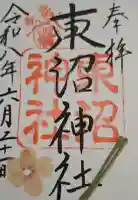 奉拝
東沼神社
東沼
神社
令和六年六月二十一日